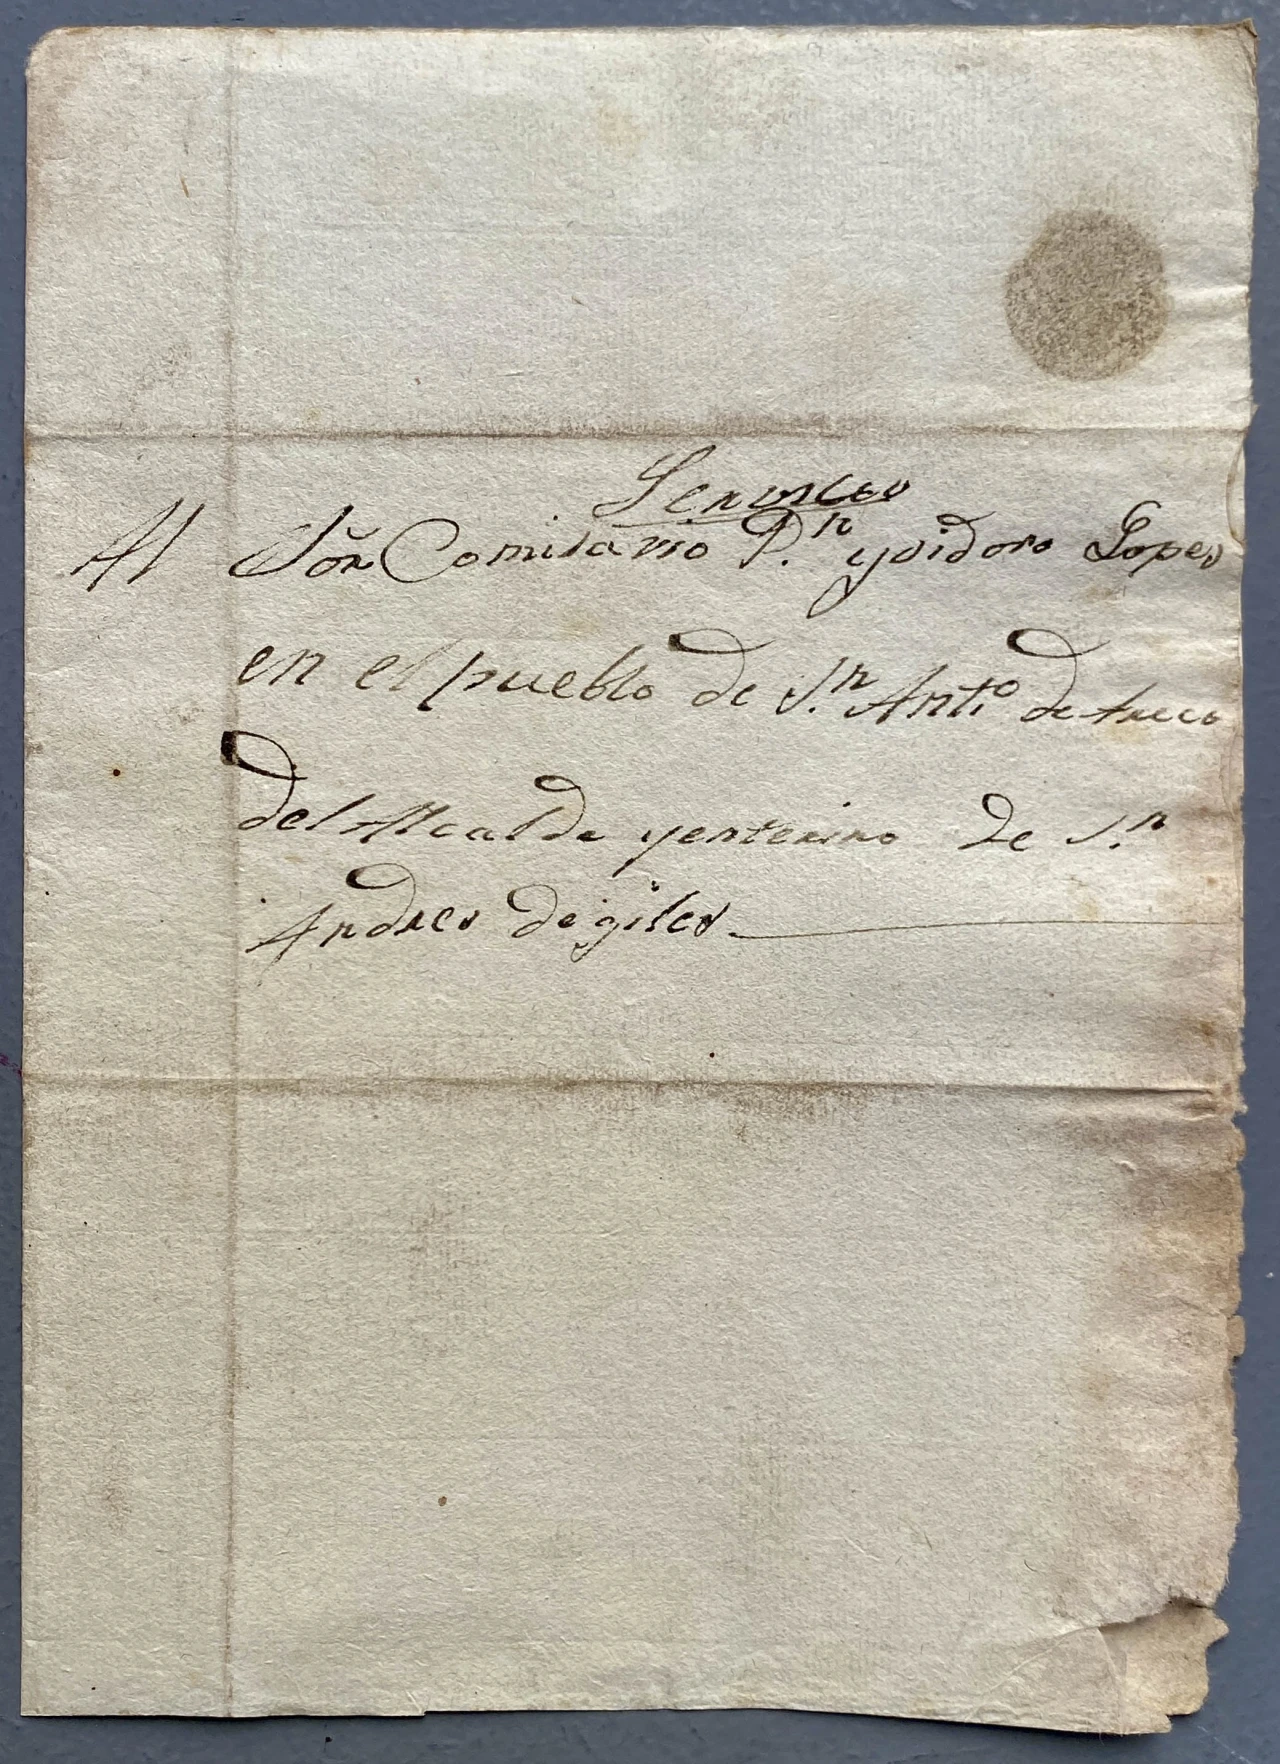 Servicio
Al Sõr Comisario D.n ysidoro Lopes
en el pueblo de S.n Ant.o de Areco
del Alcalde ynterino de S.n
Andres de giles.